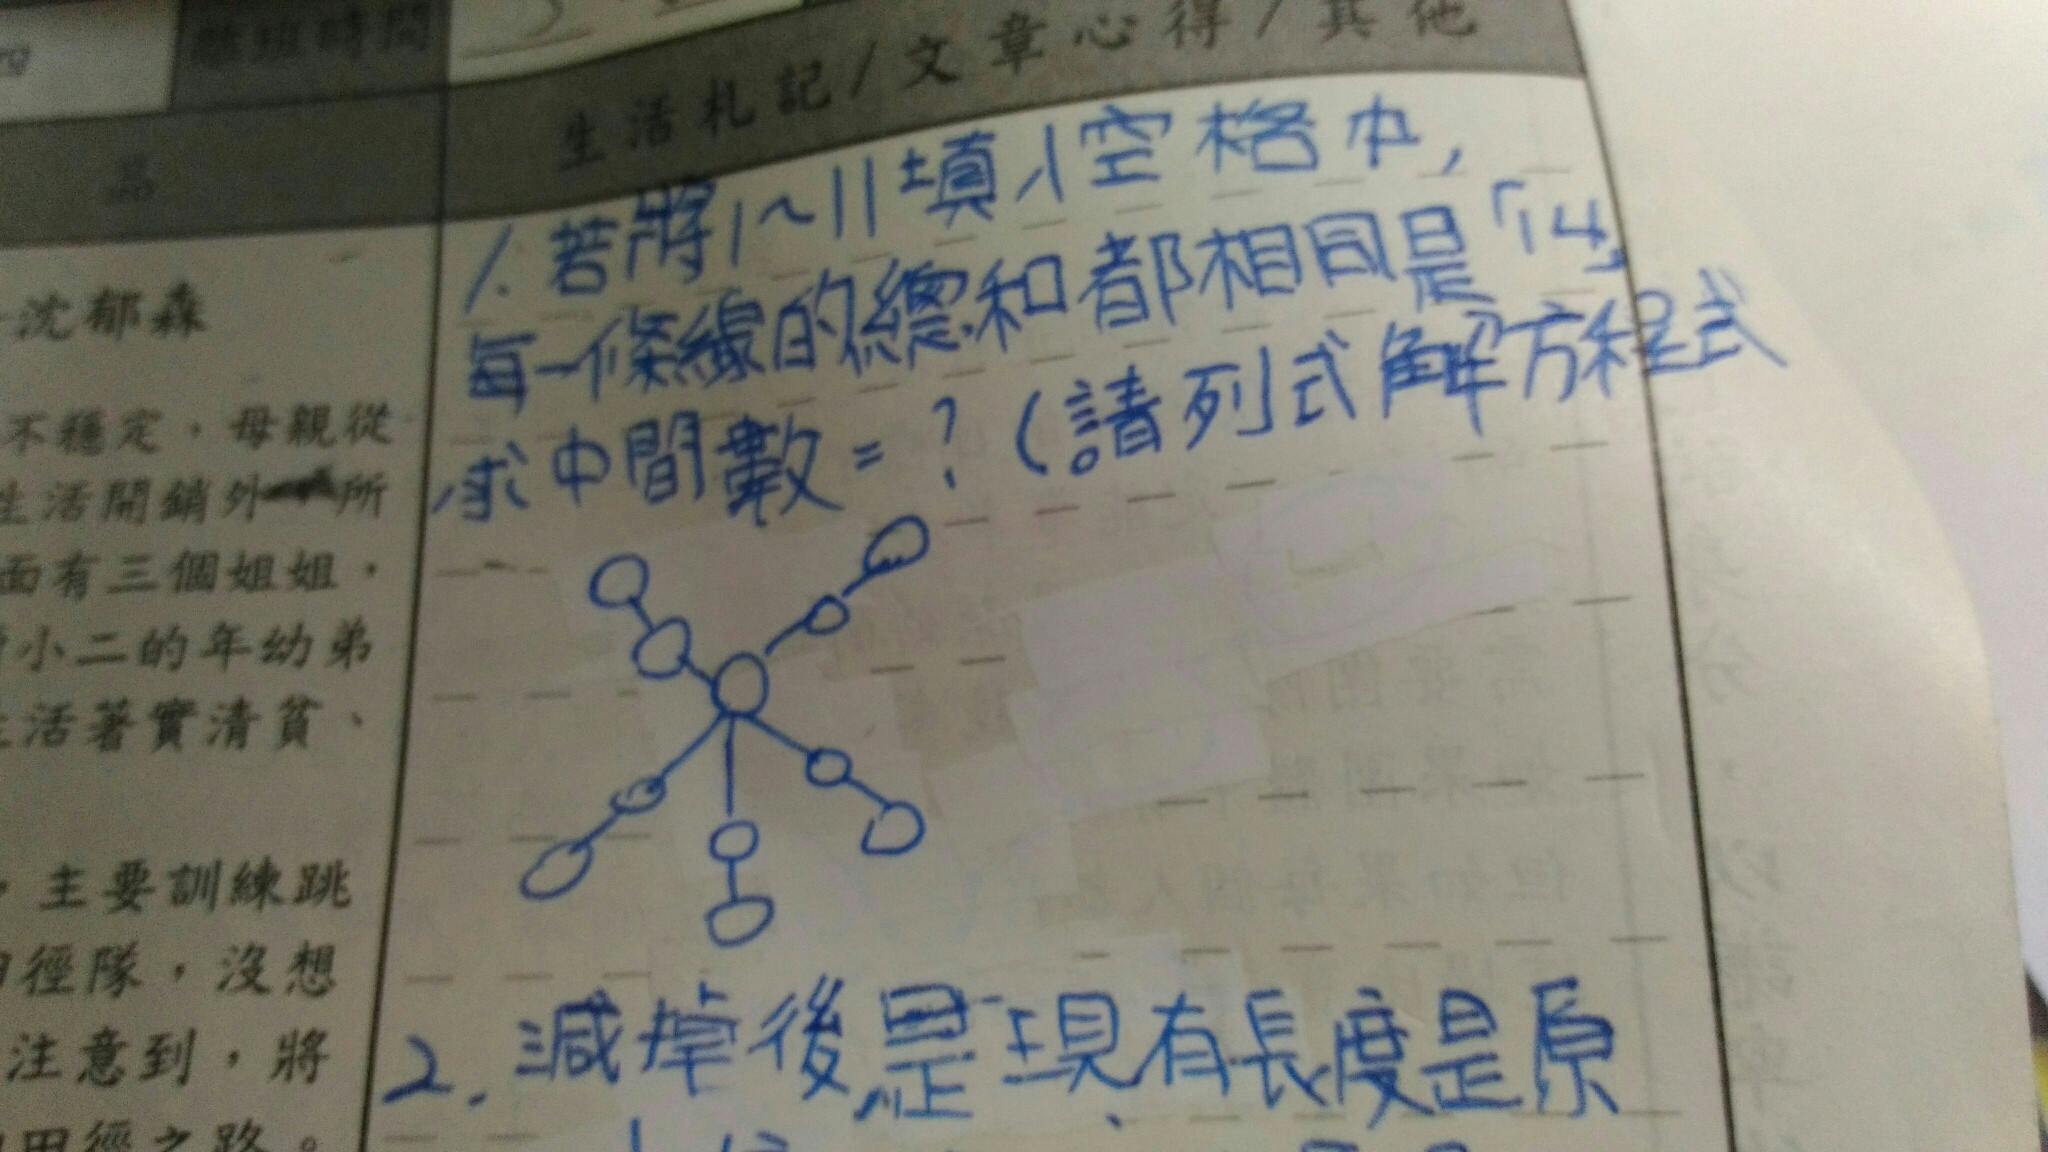 離班時間
生活札記/文章心得/其他
1.若將1~11填入空格中,
每一條線的總和都相同是「14」
求中間數=?(請列式解方程式
沈郁森
不穩定，母親從
生活開銷外，所
面有三個姐姐，
小二的年幼弟
活著實清貧、
，主要訓練跳
徑隊，沒想
注意到，將
田徑之路。
2.減掉後是現有長度是原